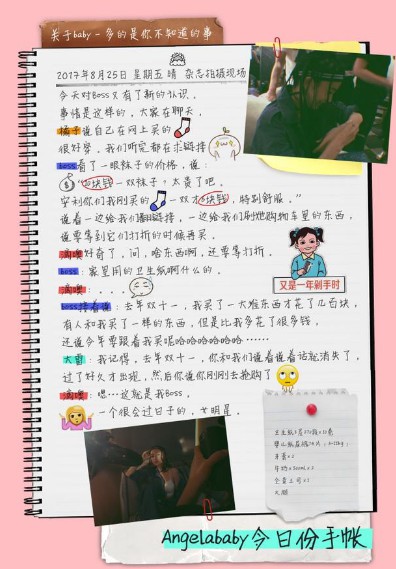 关于baby-多的是你不知道的事
2017年8月25日 星期五 晴 杂志拍摄现场
今天对Boss又有了新的认识.
事情是这样的,大家在聊天,
橘子说自己在网上买的
很好穿,我们听完都在求链接
boss看了一眼袜子的价格,说:
块钱一双袜子?太贵了吧.
安利你们我刚买的 一双才 块钱,特别舒服."
说着一边给我们翻链接,一边给我们刷她购物车里的东西,
说要等到它们打折的时候再买.
好奇了,问,啥东西啊,还要等打折.
boss:家里用的卫生纸啊什么的.
:...
又是一年剁手时
boss接着说:去年双十一,我买了一大堆东西才花了几百块,
有人和我买了一样的东西,但是比我多花了很多钱,
还说今年要跟着我买呢哈哈哈哈哈哈……
大雷:我记得,去年双十一,你和我们说着说着话就消失了,
过了好久才出现,然后你说你刚刚去抢购了
:嗯...这就是我Boss,
一个很会过日子的,女明星.
牙膏x2
Angelababy今日份手帐